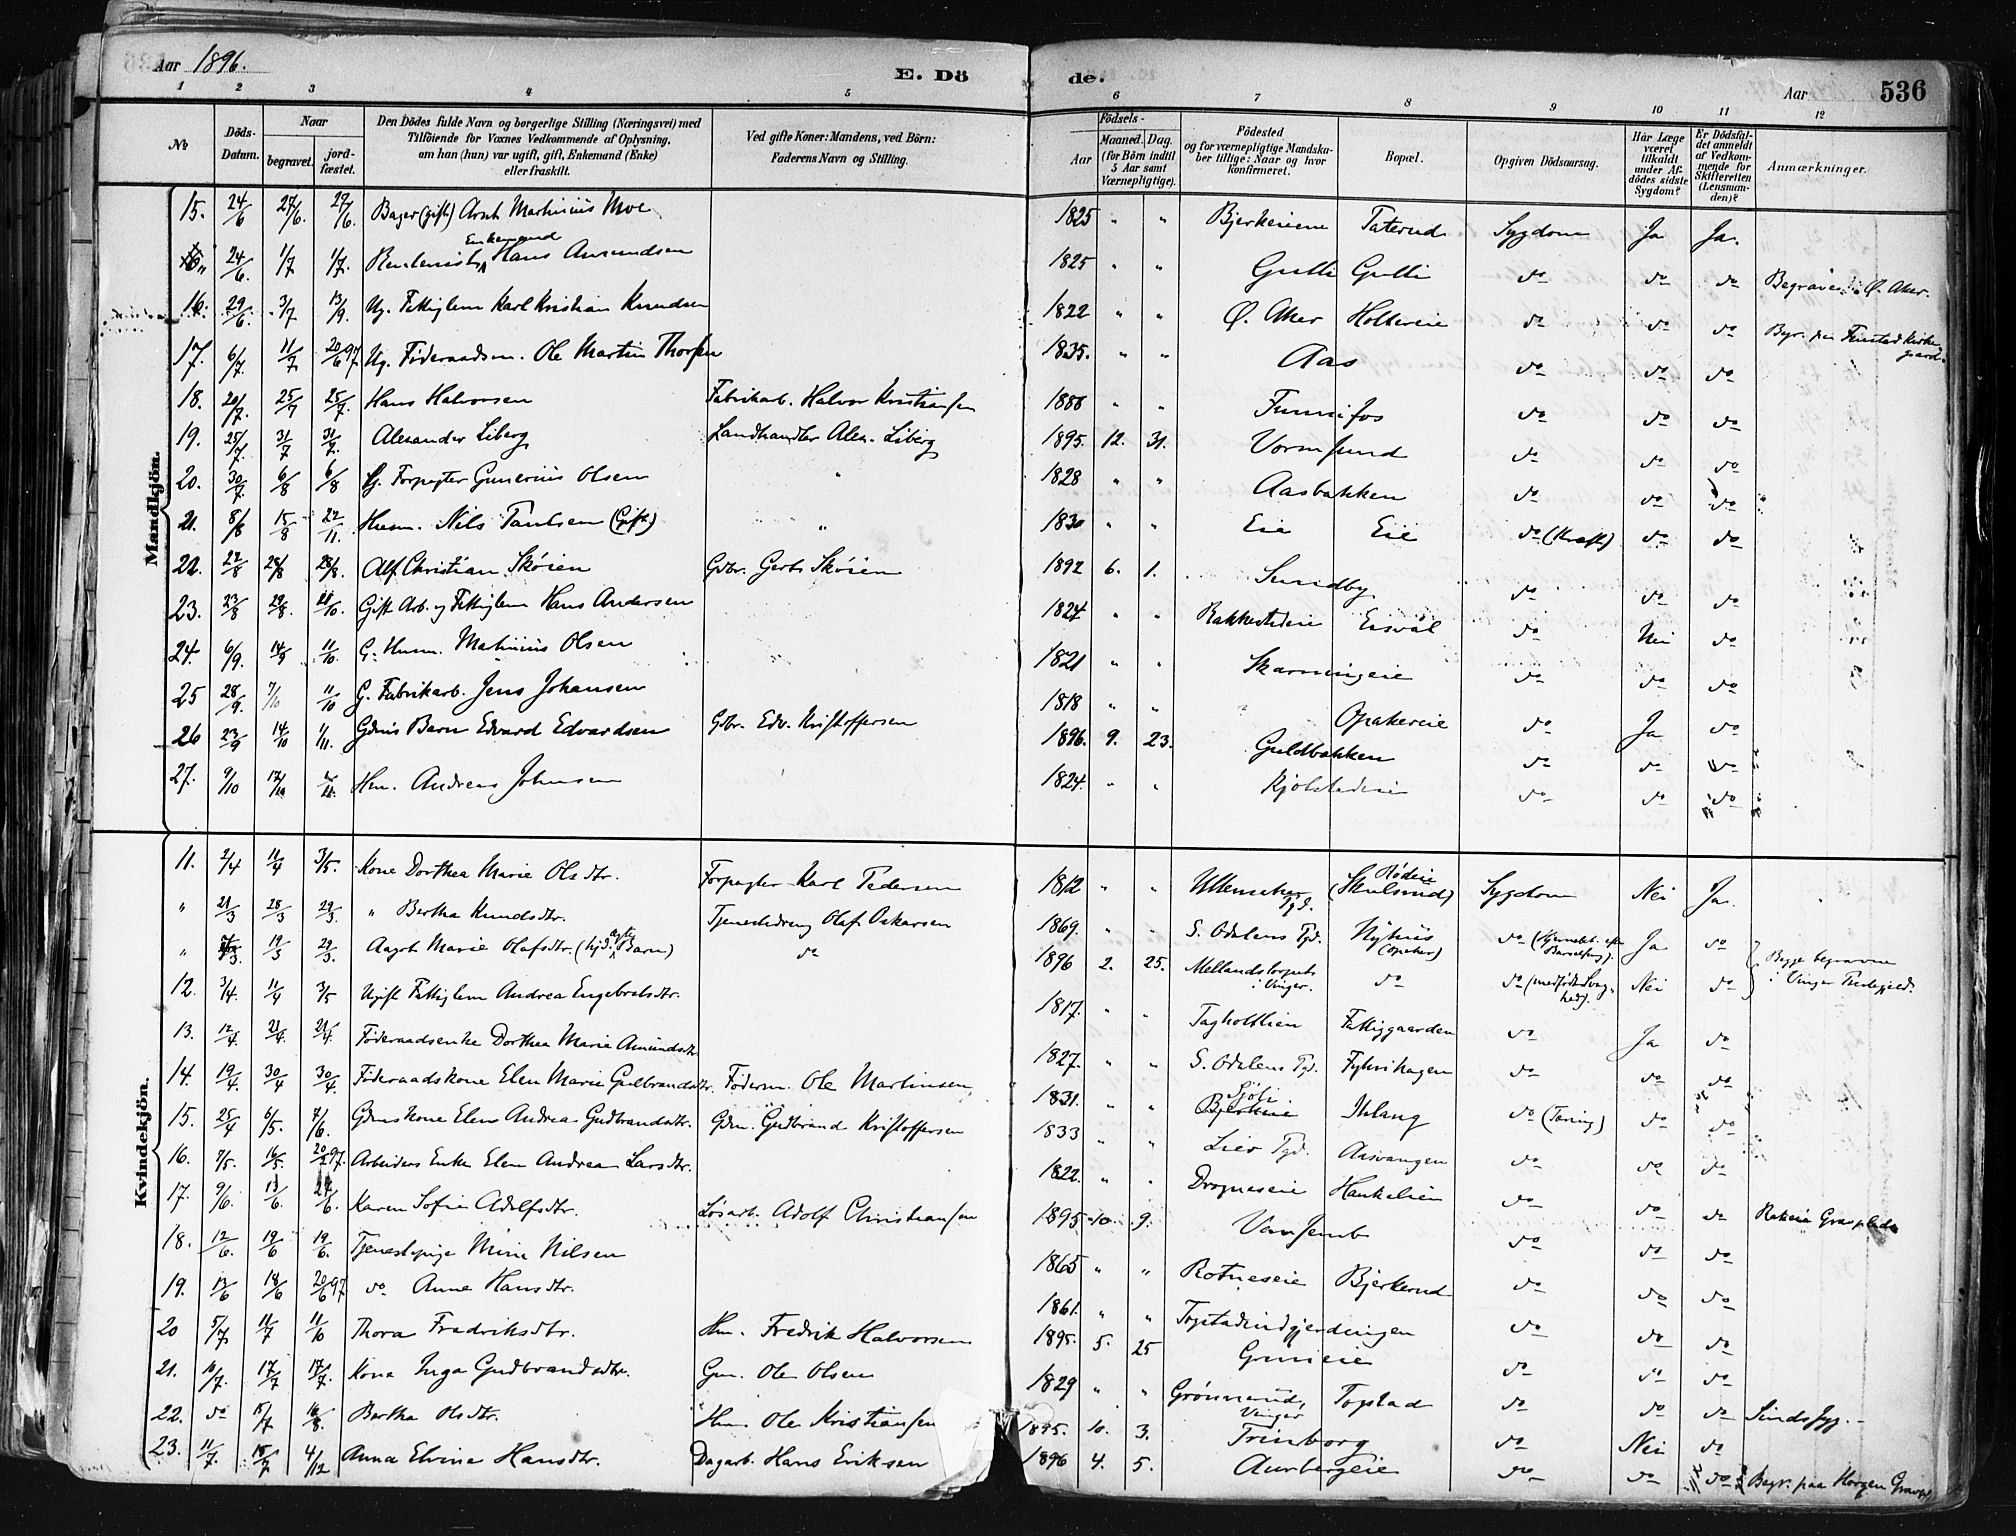 Aar 1896.
E. Döde.
Aar 536
1 2 3 4 5 6 7 8 9 10 11 12
№
Döds-Datum.
Naar
begravet.
jord-fæstet.
Den Dödes fulde Navn og borgerlige Stilling (Næringsvei) med Tilföiende for Voxnes Vedkommende af Oplysning, om han (hun) var ugift, gift, Enkemand (Enke) eller fraskilt.
Ved gifte Koner: Mandens, ved Börn: Faderens Navn og Stilling.
Födsels-
Aar
Maaned. Dag. (for Börn indtil 5 Aar samt Værnepligtige).
Födested og for værnepligtige Mandska-ber tillige: Naar og hvor konfirmeret.
Bopæl.
Opgiven Dödsaarsag.
Har Læge været tilkaldt under Af-dödes sidste Sygdom?
Er Dödsfal-det anmeldt af Vedkom-mende for Skifteretten (Lensman-den)?
Anmærkninger.
Mandkjön.
15. 24/6 27/6. 27/6. Bager (gift) Arnt Martinius Moe 1825 " " Bjerkeiene Taterud Sygdom Ja Ja.
24/6. 1/7 1/7. Enkemand Hans Amundsen 1825 " " Gulli Gulli do do do Begraves i Ø. Aker.
16. 29/6. 3/7 13/9. Ug. Fattiglem Karl Kristian Knudsen 1822 " " Ø. Aker Holtereie do do do Begr. paa Finstad Kirkegaard.
17. 6/7. 11/7 20/6 97. Ug. Føderaadsm. Ole Martin Thorsen 1835. " " Aas do do do
18. 20/7. 25/7 25/7. Hans Halvorsen Fabrikarb. Halvor Kristiansen 1886 " " Funnefos do do do
19. 25/7. 31/7 31/7. Alexander Liberg Landhandler Alex. Liberg 1895. 12. 31. Vormsund do do do
20. 30/7. 6/8 6/8 Forpagter Gunerius Olsen " 1828 " " Aasbakken do do do
21. 8/8 15/8 22/11. Husm. Nils Paulsen (Gift) " 1830 " " Eie Eie do (Kræft) do do
22. 22/8 28/8 28/8. Alf Christian Skøien Gdbr. Gerh. Skøien 1892 6. 1. Sundby do do do
23. 23/8 29/8. 11/10. Gift Arb. og Fattiglem Hans Andersen 1824 " " Bakkestadeie Eisvål do Nei do
24. 6/9. 14/9 11/10. G. Husm. Martinius Olsen 1821 " " Skarningeie do do do
25 28/9. 7/10 11/10 G. Fabrikarb. Jens Johansen 1818 " " Opakereie do Ja do
26 23/9 14/10 1/11. Gdms Barn Edvard Edvardsen Gdbr. Edv. Kristoffersen 1896. 9. 23. Guldbakken do do do
27. 9/10 17/10 Hm. Andreas Johnsen 1824. " " Kjølstadeie do do do
Kvindekjön.
11. 2/4 11/4 3/5. Kone Dorthea Marie Olsdtr. Forpagter Karl Pedersen 1812 " " Ullensaker Pgd. Rødeie (Skulsrud) Sygdom Nei Ja.
" 21/3 28/3 29/3. " Bertha Knudsdtr. Tjenestedreng Olaf Oskarsen 1869. " " S. Odalens Pgd. Nyhus (Opaker) do (Hjernebet. efter Barselseng). Ja do
" 19/3 29/3. Aagot Marie Olafsdtr. (hjd. ægte Barn) do 1896 2. 25. Mellandstorpet i Vinger. do do (medfødt Svaghed). Nei do Begge begravne i Vinger Præstegjeld.
12. 3/4. 11/4 3/5 Ugift Fattiglem Andrea Engebretsdtr. 1817. " " Tagholtlien Fattiggaarden do Ja do
13. 12/4. 21/4. 21/4. Føderaadsenke Dorthea Marie Amundsdtr. 1827. " " S. Odalens Pgd. Fylrihagen do do do
14. 19/4. 30/4 30/4. Føderaadskone Elen Marie Gulbrandsdtr. Føderm. Ole Martinsen 1831. " " Sjøli Bjerkeie Ihlang do (Tæring) do do
15. 25/4 6/5. 7/6. Gdmskone Elen Andrea Gudbrandsdtr. Gdm. Gudbrand Kristoffersen 1833 " " Lier Pgd. Aasvangen do do do
16. 7/5. 16/5. 20/2 97. Arbeiders Enke Elen Andrea Larsdtr. 1822. " " Drogneseie Haukelien do do do
17. 9/6. 13/6 Karen Sofie Adolfsdtr. Løsarb. Adolf Christiansen 1895 10 9. Vormsund do do do Rakeie Gravplads
18. 12/6. 19/6 19/6. Tjenestepige Mina Nilsen 1865 " " Rotneseie Bjerkerud do do do
19. 13/6 18/6 20/6 97 do Anne Hansdtr. 1861. " " Topstadindgjerdingen do do do
20 5/7 11/7 11/10 Thora Fredriksdtr. Hm. Fredrik Halvorsen 1895. 5. 25 Gruneie do " do
21. 10/7. 17/7 17/7. Kona Inga Gudbrandsdtr. Gm. Ole Olsen 1829 " " Grønnerud, Vinger Topstad do do do Sindssyg.
22. do 15/7 16/8. Bertha Olsdtr. Hm. Ole Kristiansen 1895. 10. 3. Trinborg do Nei do
23. 11/7. 4/12 Anna Elvine Hansdtr. Dagarb. Hans Eriksen 1896 4. 5. Aurbergeie do do do Begr. paa Horgen Gravpl.